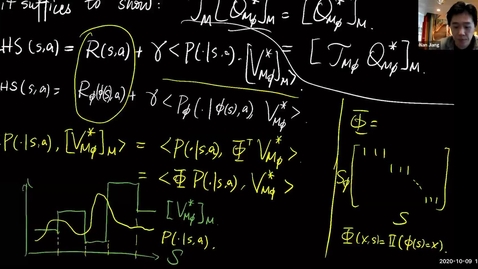 it suffices to show: 𝒯_M [Q*_{Mφ}]_M = [Q*_{Mφ}]_M.
HS(s,a) = R(s,a) + γ < P(·|s,a), [V*_{Mφ}]_M > = [𝒯_{Mφ} Q*_{Mφ}]_M.
HS(s,a) = R_φ(φ(s),a) + γ < P_φ(·|φ(s),a) V*_{Mφ} >
P(·|s,a), [V*_{Mφ}]_M > = < P(·|s,a), Φ^T V*_{Mφ} >
= < Φ P(·|s,a), V*_{Mφ} >
[V*_{Mφ}]_M
P(·|s,a).
S
Φ =
S_φ
S
Φ(x,s) = 𝕀(φ(s)=x).
Nan Jiang
2020-10-09 1